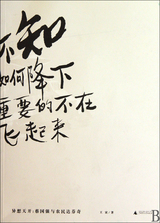 不知
如何降下
重要的不在
飞起来
异想天开:蔡国强与农民达芬奇